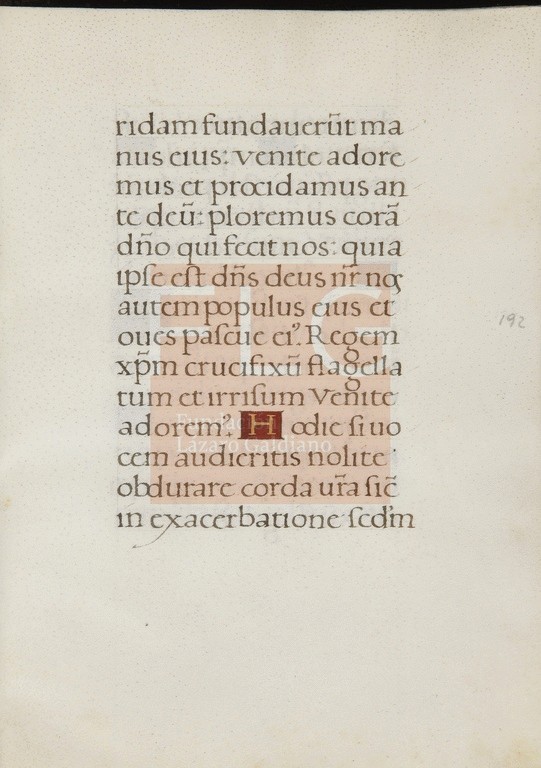 ridam fundauerūt ma
nus eius: venite adore
mus et procidamus an
te deū: ploremus corā
dño qui fecit nos: quia
ipſe eſt dñs deus nr̃ nos
autem populus eius et
oues paſcue ei⁹. Regem
xp̃m crucifixū flagella
tum et irriſum Venite
adorem⁹. Hodie ſi uo
cem audieritis nolite
obdurare corda ur̃a ſic̃
in exacerbatione ſcd̃m
192
FLG
Fundación
Lázaro Galdiano